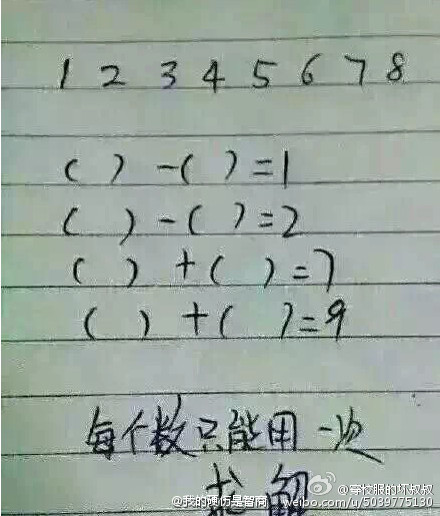 1 2 3 4 5 6 7 8
( ) - ( ) = 1
( ) - ( ) = 2
( ) + ( ) = 7
( ) + ( ) = 9
每个数只能用一次
求解
@穿校服的坏叔叔
@我的硬伤是智商 weibo.com/u/5039775130